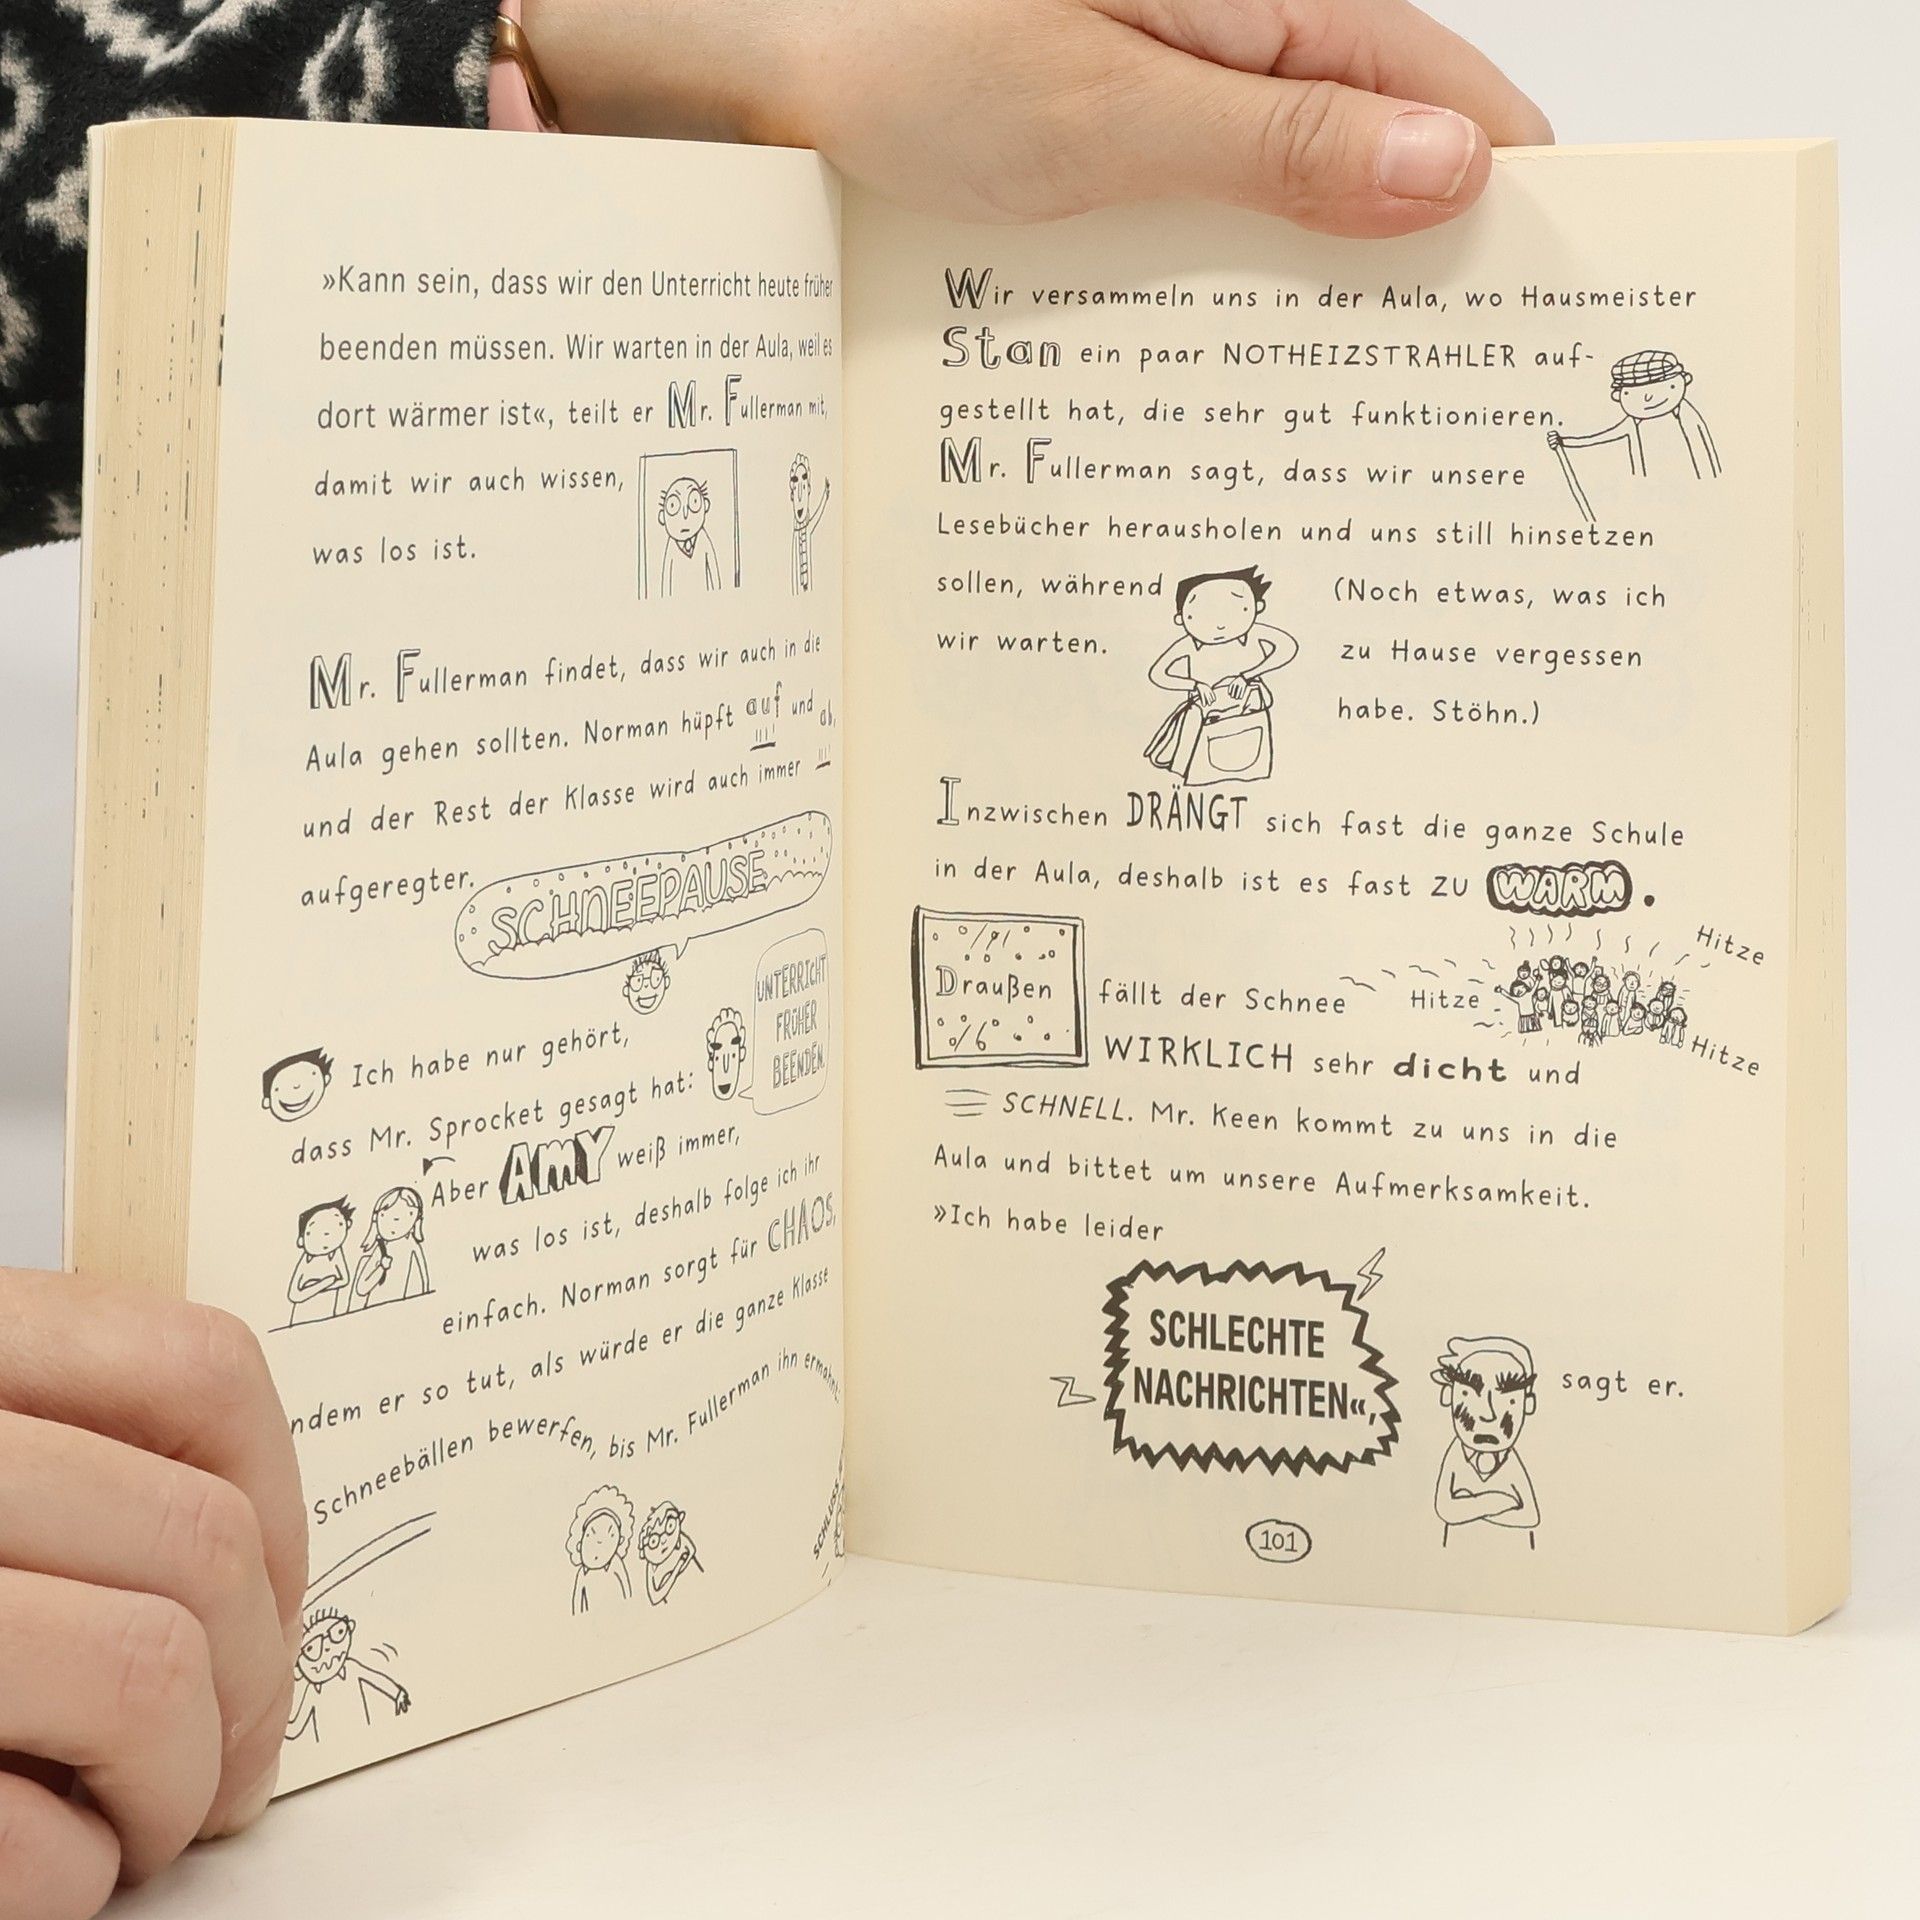 »Kann sein, dass wir den Unterricht heute früher
beenden müssen. Wir warten in der Aula, weil es
dort wärmer ist«, teilt er Mr. Fullerman mit,
damit wir auch wissen,
was los ist.
Mr. Fullerman findet, dass wir auch in die
Aula gehen sollten. Norman hüpft auf und ab,
und der Rest der Klasse wird auch immer
aufgeregter.
SCHNEEPAUSE
Ich habe nur gehört,
dass Mr. Sprocket gesagt hat:
UNTERRICHT
FRÜHER
BEENDEN.
Aber AMY weiß immer,
was los ist, deshalb folge ich ihr
einfach. Norman sorgt für CHAOS,
indem er so tut, als würde er die ganze Klasse
Schneebällen bewerfen, bis Mr. Fullerman ihn ermahnt:
SCHLUSS
Wir versammeln uns in der Aula, wo Hausmeister
Stan ein paar NOTHEIZSTRAHLER auf-
gestellt hat, die sehr gut funktionieren.
Mr. Fullerman sagt, dass wir unsere
Lesebücher herausholen und uns still hinsetzen
sollen, während
wir warten.
(Noch etwas, was ich
zu Hause vergessen
habe. Stöhn.)
Inzwischen DRÄNGT sich fast die ganze Schule
in der Aula, deshalb ist es fast ZU WARM.
Draußen fällt der Schnee
Hitze
Hitze
Hitze
WIRKLICH sehr dicht und
SCHNELL. Mr. Keen kommt zu uns in die
Aula und bittet um unsere Aufmerksamkeit.
»Ich habe leider
SCHLECHTE
NACHRICHTEN«,
sagt er.
101